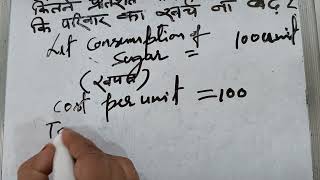 कितने प्रतिशत
कि परिवार का खर्च ना बढ़े
Let Consumption of
Sugar = 100 unit
(खपत)
Cost per unit = 100
T